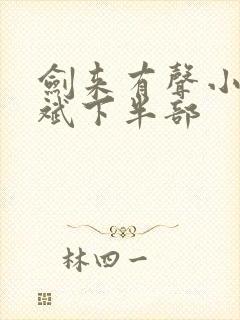 劍来有聲小
斌下半部
林四一